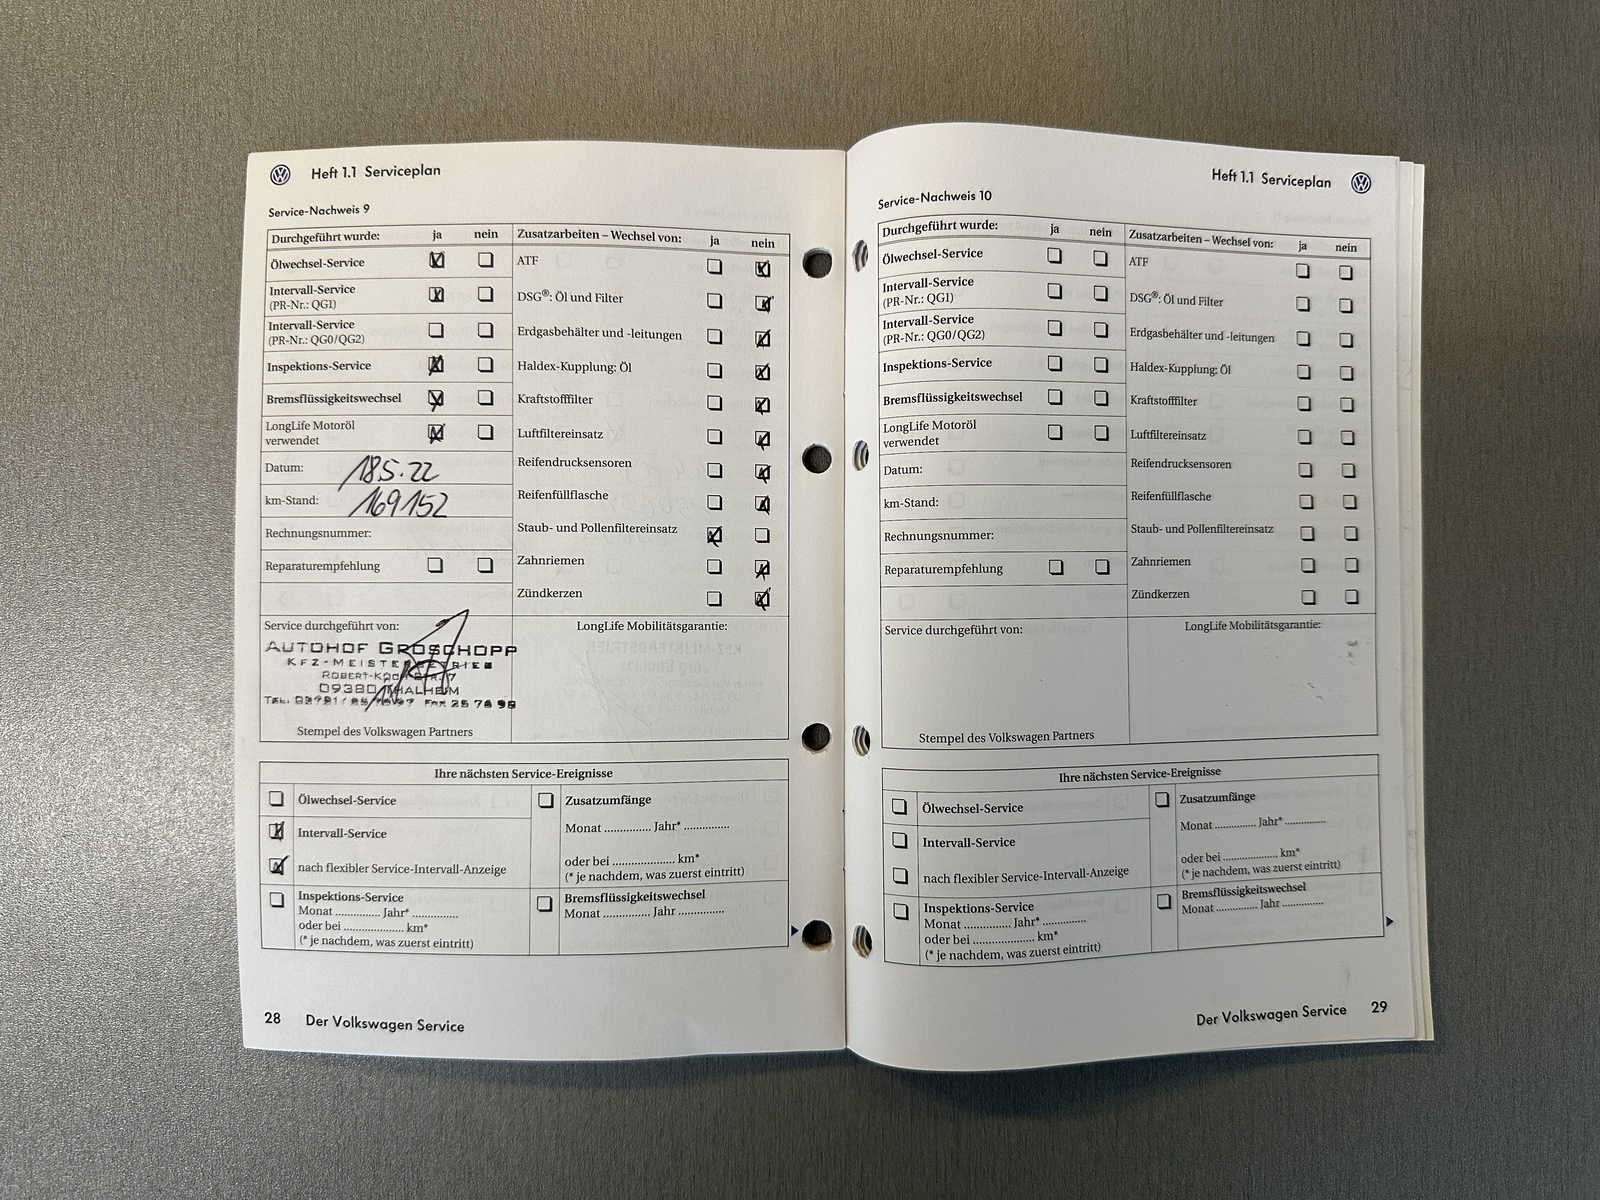 Heft 1.1 Serviceplan
Service-Nachweis 9
Durchgeführt wurde: ja nein
Ölwechsel-Service
Intervall-Service
(PR-Nr.: QG1)
Intervall-Service
(PR-Nr.: QG0/QG2)
Inspektions-Service
Bremsflüssigkeitswechsel
LongLife Motoröl
verwendet
Datum: 18.5.22
km-Stand: 169152
Rechnungsnummer:
Reparaturempfehlung
Zusatzarbeiten – Wechsel von: ja nein
ATF
DSG®: Öl und Filter
Erdgasbehälter und -leitungen
Haldex-Kupplung: Öl
Kraftstofffilter
Luftfiltereinsatz
Reifendrucksensoren
Reifenfüllflasche
Staub- und Pollenfiltereinsatz
Zahnriemen
Zündkerzen
Service durchgeführt von:
AUTOHOF GROSCHOPP
KFZ-MEISTERBETRIEB
ROBERT-KOCH-STR. 7
09380 THALHEIM
TEL. FAX
Stempel des Volkswagen Partners
LongLife Mobilitätsgarantie:
Ihre nächsten Service-Ereignisse
Ölwechsel-Service
Intervall-Service
nach flexibler Service-Intervall-Anzeige
Inspektions-Service
Monat .............. Jahr* ..............
oder bei .................... km*
(* je nachdem, was zuerst eintritt)
Zusatzumfänge
Monat .............. Jahr* ..............
oder bei .................... km*
(* je nachdem, was zuerst eintritt)
Bremsflüssigkeitswechsel
Monat .............. Jahr ..............
28 Der Volkswagen Service
Heft 1.1 Serviceplan
Service-Nachweis 10
Durchgeführt wurde: ja nein
Ölwechsel-Service
Intervall-Service
(PR-Nr.: QG1)
Intervall-Service
(PR-Nr.: QG0/QG2)
Inspektions-Service
Bremsflüssigkeitswechsel
LongLife Motoröl
verwendet
Datum:
km-Stand:
Rechnungsnummer:
Reparaturempfehlung
Zusatzarbeiten – Wechsel von: ja nein
ATF
DSG®: Öl und Filter
Erdgasbehälter und -leitungen
Haldex-Kupplung: Öl
Kraftstofffilter
Luftfiltereinsatz
Reifendrucksensoren
Reifenfüllflasche
Staub- und Pollenfiltereinsatz
Zahnriemen
Zündkerzen
Service durchgeführt von:
Stempel des Volkswagen Partners
LongLife Mobilitätsgarantie:
Ihre nächsten Service-Ereignisse
Ölwechsel-Service
Intervall-Service
nach flexibler Service-Intervall-Anzeige
Inspektions-Service
Monat .............. Jahr* ..............
oder bei .................... km*
(* je nachdem, was zuerst eintritt)
Zusatzumfänge
Monat .............. Jahr* ..............
oder bei .................... km*
(* je nachdem, was zuerst eintritt)
Bremsflüssigkeitswechsel
Monat .............. Jahr ..............
Der Volkswagen Service 29